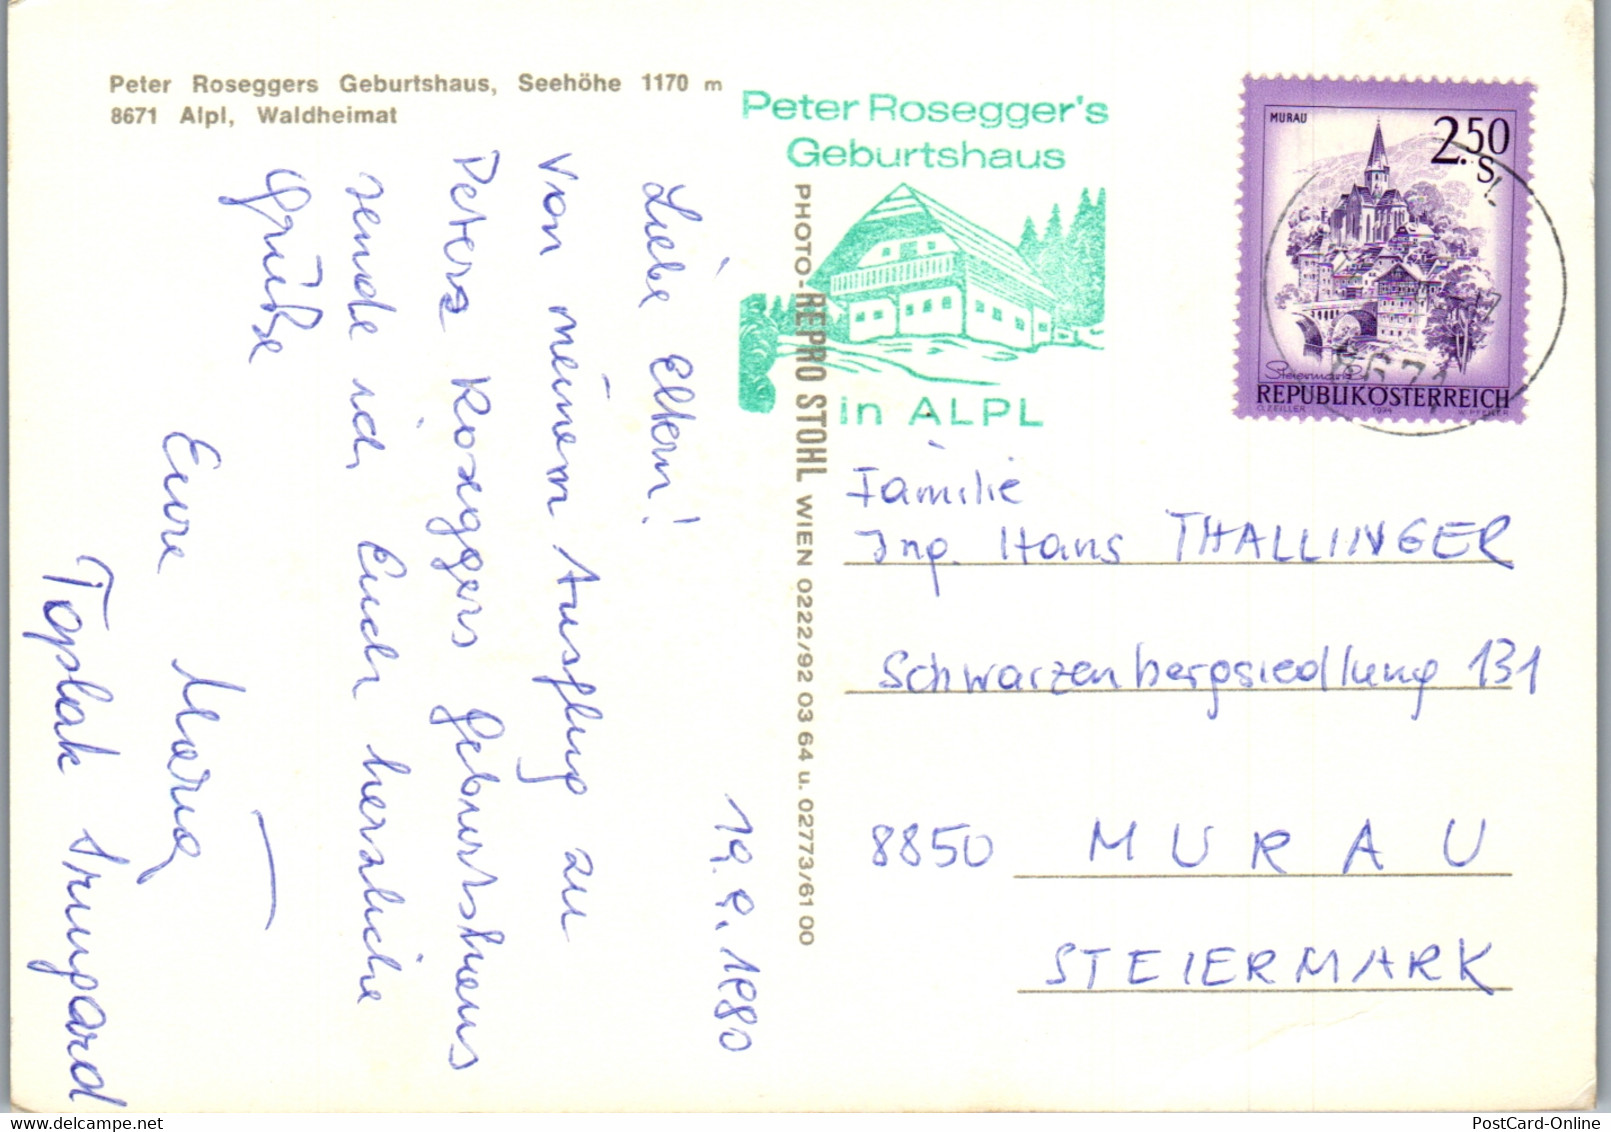 Peter Roseggers Geburtshaus, Seehöhe 1170 m
8671 Alpl, Waldheimat
Peter Rosegger's
Geburtshaus
in ALPL
MURAU
2.50
S
Steiermark
REPUBLIK ÖSTERREICH
O.ZEILLER 1974 W.PFEILER
8671
PHOTO-REPRO STOHL WIEN 0222/92 03 64 u. 02773/61 00
19.9.1980
Liebe Eltern!
Von meinem Ausflug zu
Peters Roseggers Geburtshaus
sende ich Euch herzliche
Grüße
Eure
Toplak Irmgard
Familie
Ing. Hans THALLINGER
Schwarzenbergsiedlung 131
8850 MURAU
STEIERMARK
PostCard-Online